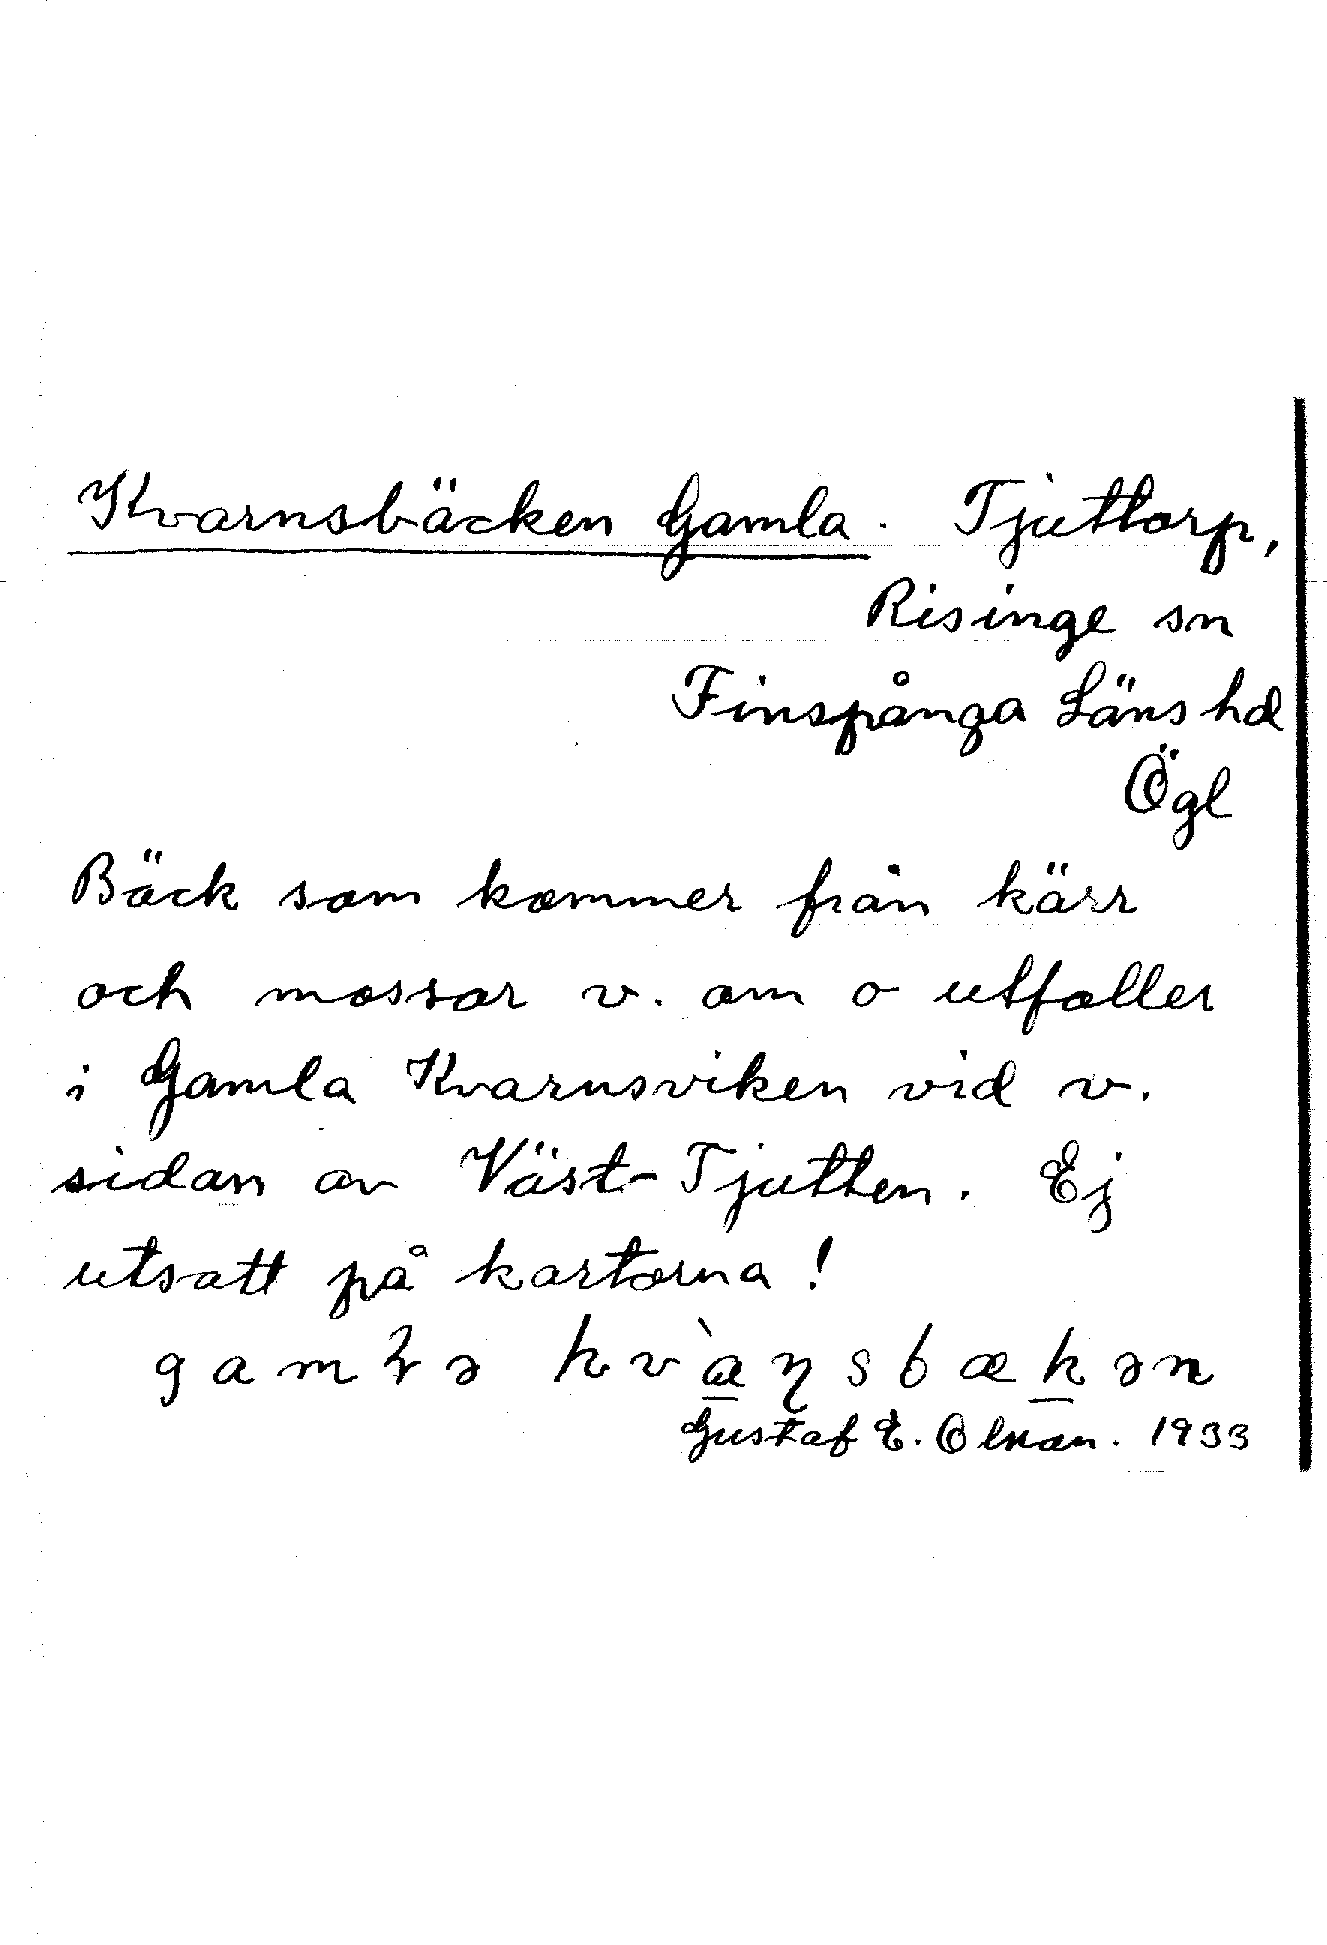 Kvarnsbäcken Gamla. Tjuttorp,
Risinge sn
Finspånga Läns hd
Ögl
Bäck som kommer från kärr
och mossar v. om o utfaller
i Gamla Kvarnsviken vid v.
sidan av Väst-Tjutten. Ej
utsatt på kartorna!
gamɫə kvàɳsbækən
Gustaf E. 1933